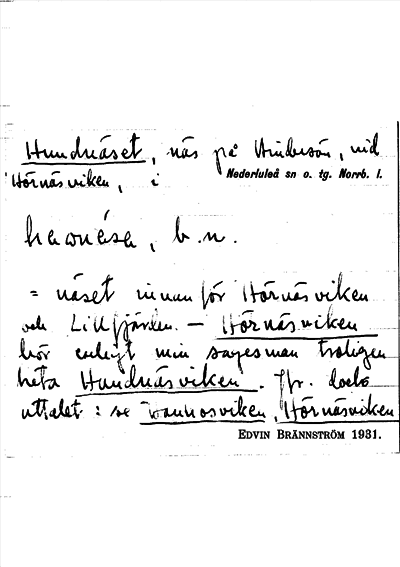 Hundnäset, näs på Hindersön, vid
Hörnäsviken, i Nederluleå sn o. tg. Norrb. l.
hawnésa, b.n.
= näset innanför Hörnäsviken
och Lillfjärden. – Hörnäsviken
bör enligt min sagesman troligen
heta Hundnäsviken. Jfr. dock
uttalet : se Hörnäsviken
EDVIN BRÄNNSTRÖM 1931.